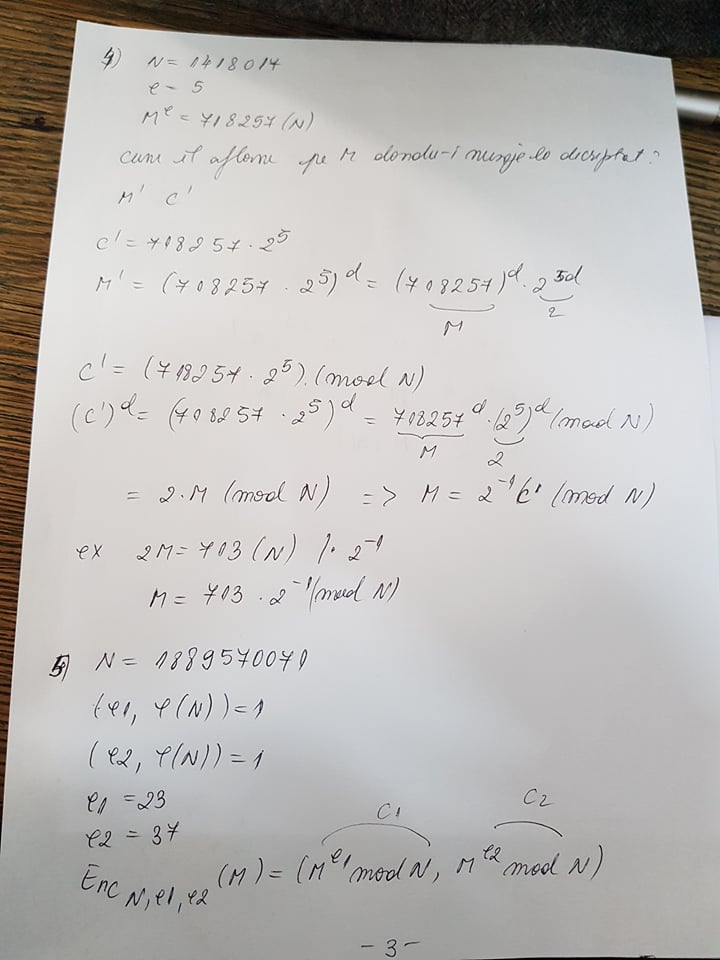 4) N = 1418017
e = 5
M^e = 718257 (N)
cum îl aflăm pe M dându-i mesaje la decriptat?
M' C'
C' = 718257 · 2^5
M' = (718257 · 2^5)^d = (718257)^d · 2^5d
M 2
C' = (718257 · 2^5) (mod N)
(C')^d = (718257 · 2^5)^d = 718257^d · (2^5)^d (mod N)
M 2
= 2·M (mod N) => M = 2^-1 C' (mod N)
ex 2M = 703 (N) /· 2^-1
M = 703 · 2^-1 (mod N)
5) N = 1889570071
(e1, φ(N)) = 1
(e2, φ(N)) = 1
e1 = 23
e2 = 37
C1 C2
Enc N,e1,e2 (M) = (M^e1 mod N, M^e2 mod N)
- 3 -